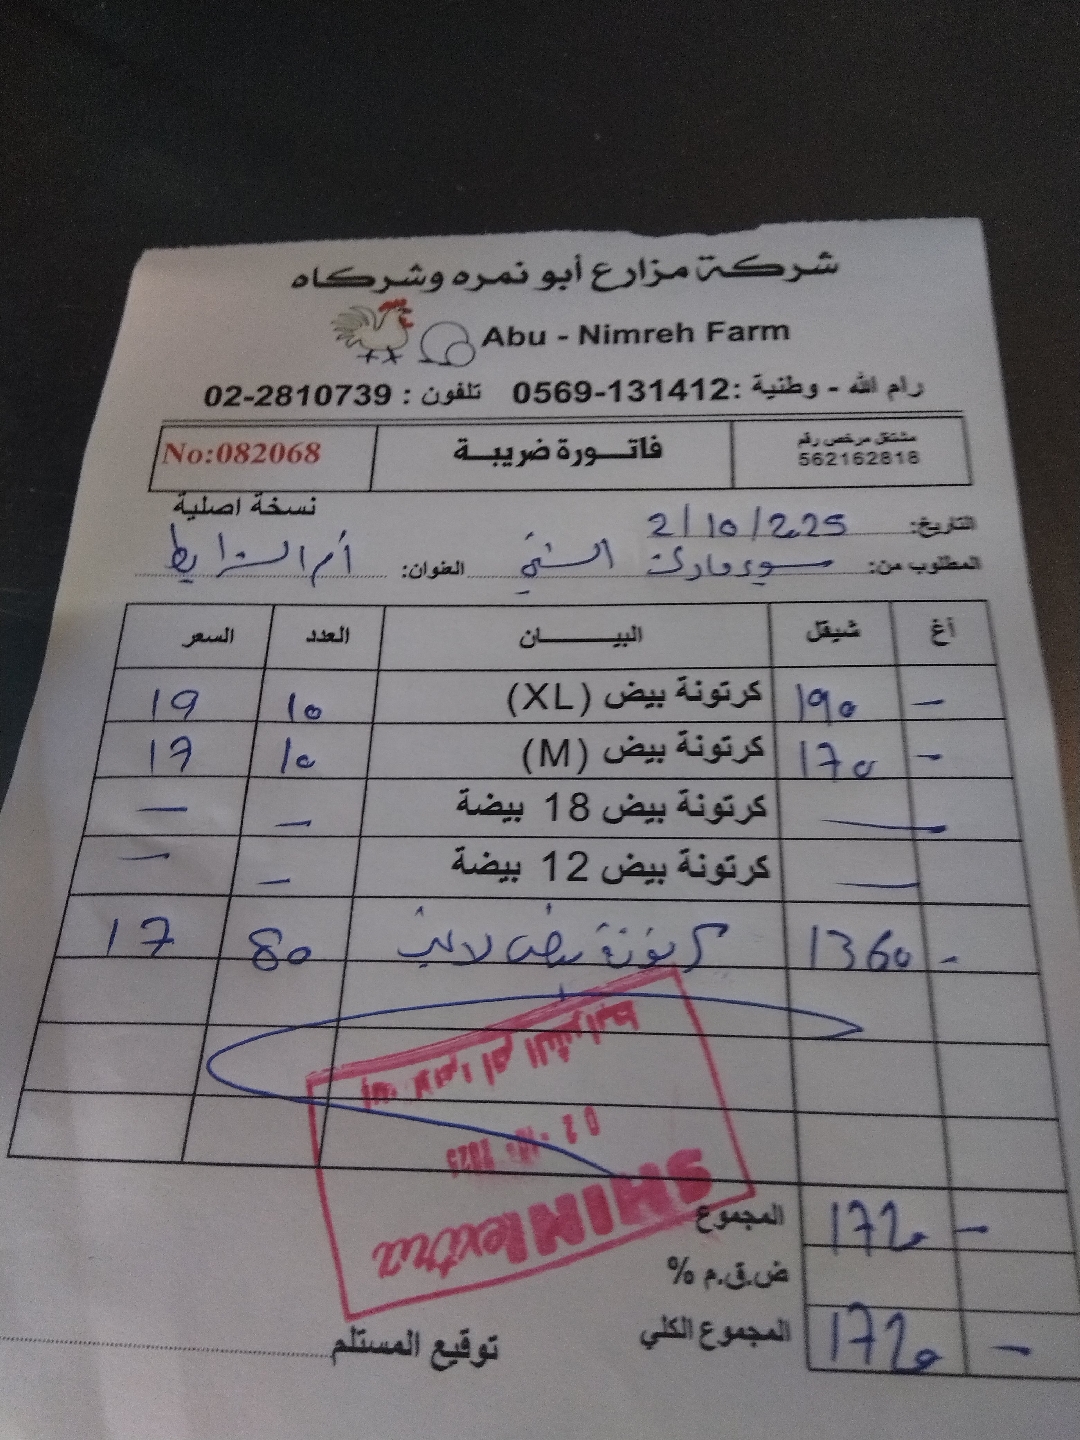 شركة مزارع أبو نمره وشركاه
Abu - Nimreh Farm
رام الله - وطنية :0569-131412 تلفون : 02-2810739
مشتغل مرخص رقم
562162818
فاتـــورة ضريبـــة
No:082068
نسخة اصلية
التاريخ: 2/10/2025
المطلوب من: سوبرماركت الشني العنوان: أم الشرايط
أغ شيقل البيـــــــان العدد السعر
- 190 كرتونة بيض (XL) 10 19
- 170 كرتونة بيض (M) 10 17
— كرتونة بيض 18 بيضة — —
— كرتونة بيض 12 بيضة — —
- 1360 كرتونة بيض 80 17
أم الشرايط
02 2025
SHINI extra
المجموع 1720 -
ض.ق.م %
المجموع الكلي 1720 -
توقيع المستلم